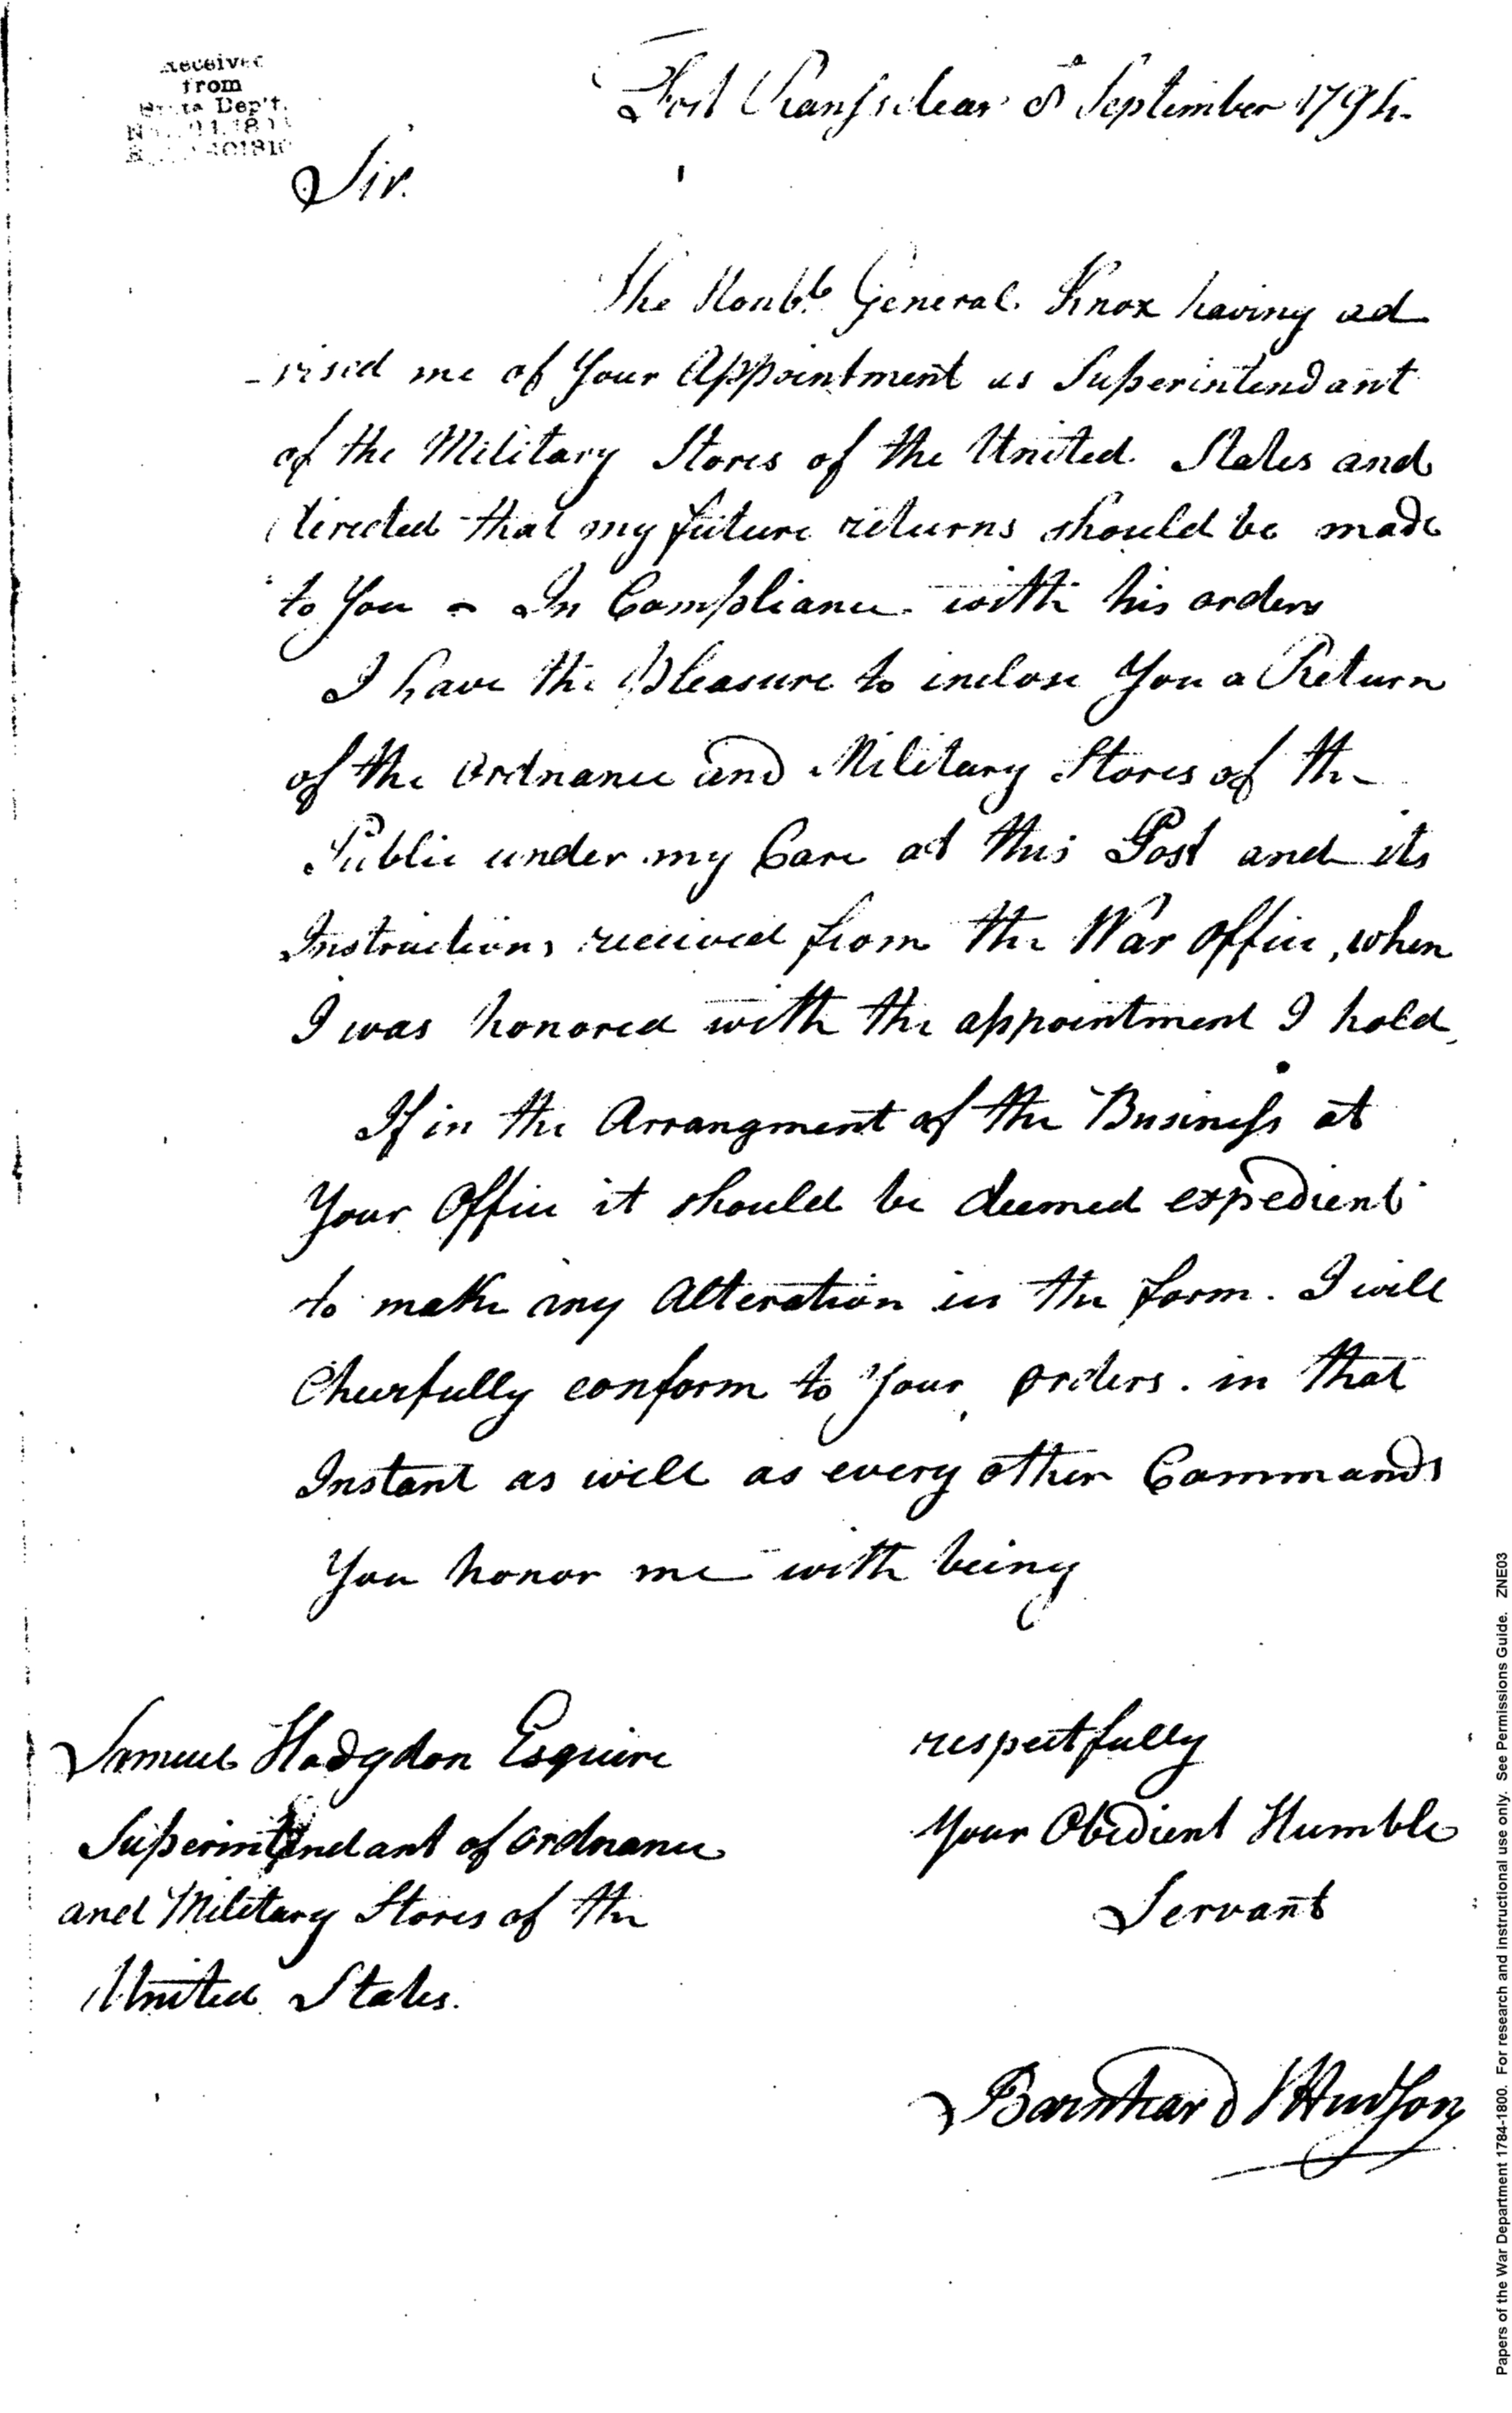 from
Dep't.
Fort Ranssclear 8 September 1794.
Sir.
The Honbl.e General Knox having ad
-vised me of Your Appointment as Superintendant
of the Military Stores of the United States and
directed that my future returns should be made
to You - In Compliance with his orders
I have the Pleasure to inclose You a Return
of the Ordnance and Military Stores of the
Public under my Care at this Post and its
Instructions received from the War Office, when
I was honored with the appointment I hold.
If in the Arrangment of the Business at
Your Office it should be deemed expedient
to make any Alteration in the form. I will
Cheerfully conform to Your orders. in that
Instant as well as every other Commands
You honor me with being
respectfully
Your Obedient Humble
Servant
Samuel Hodgdon Esquire
Superintendant of Ordnance
and Military Stores of the
United States.
Barnhard Hudson
Papers of the War Department 1784-1800. For research and instructional use only. See Permissions Guide. ZNE03